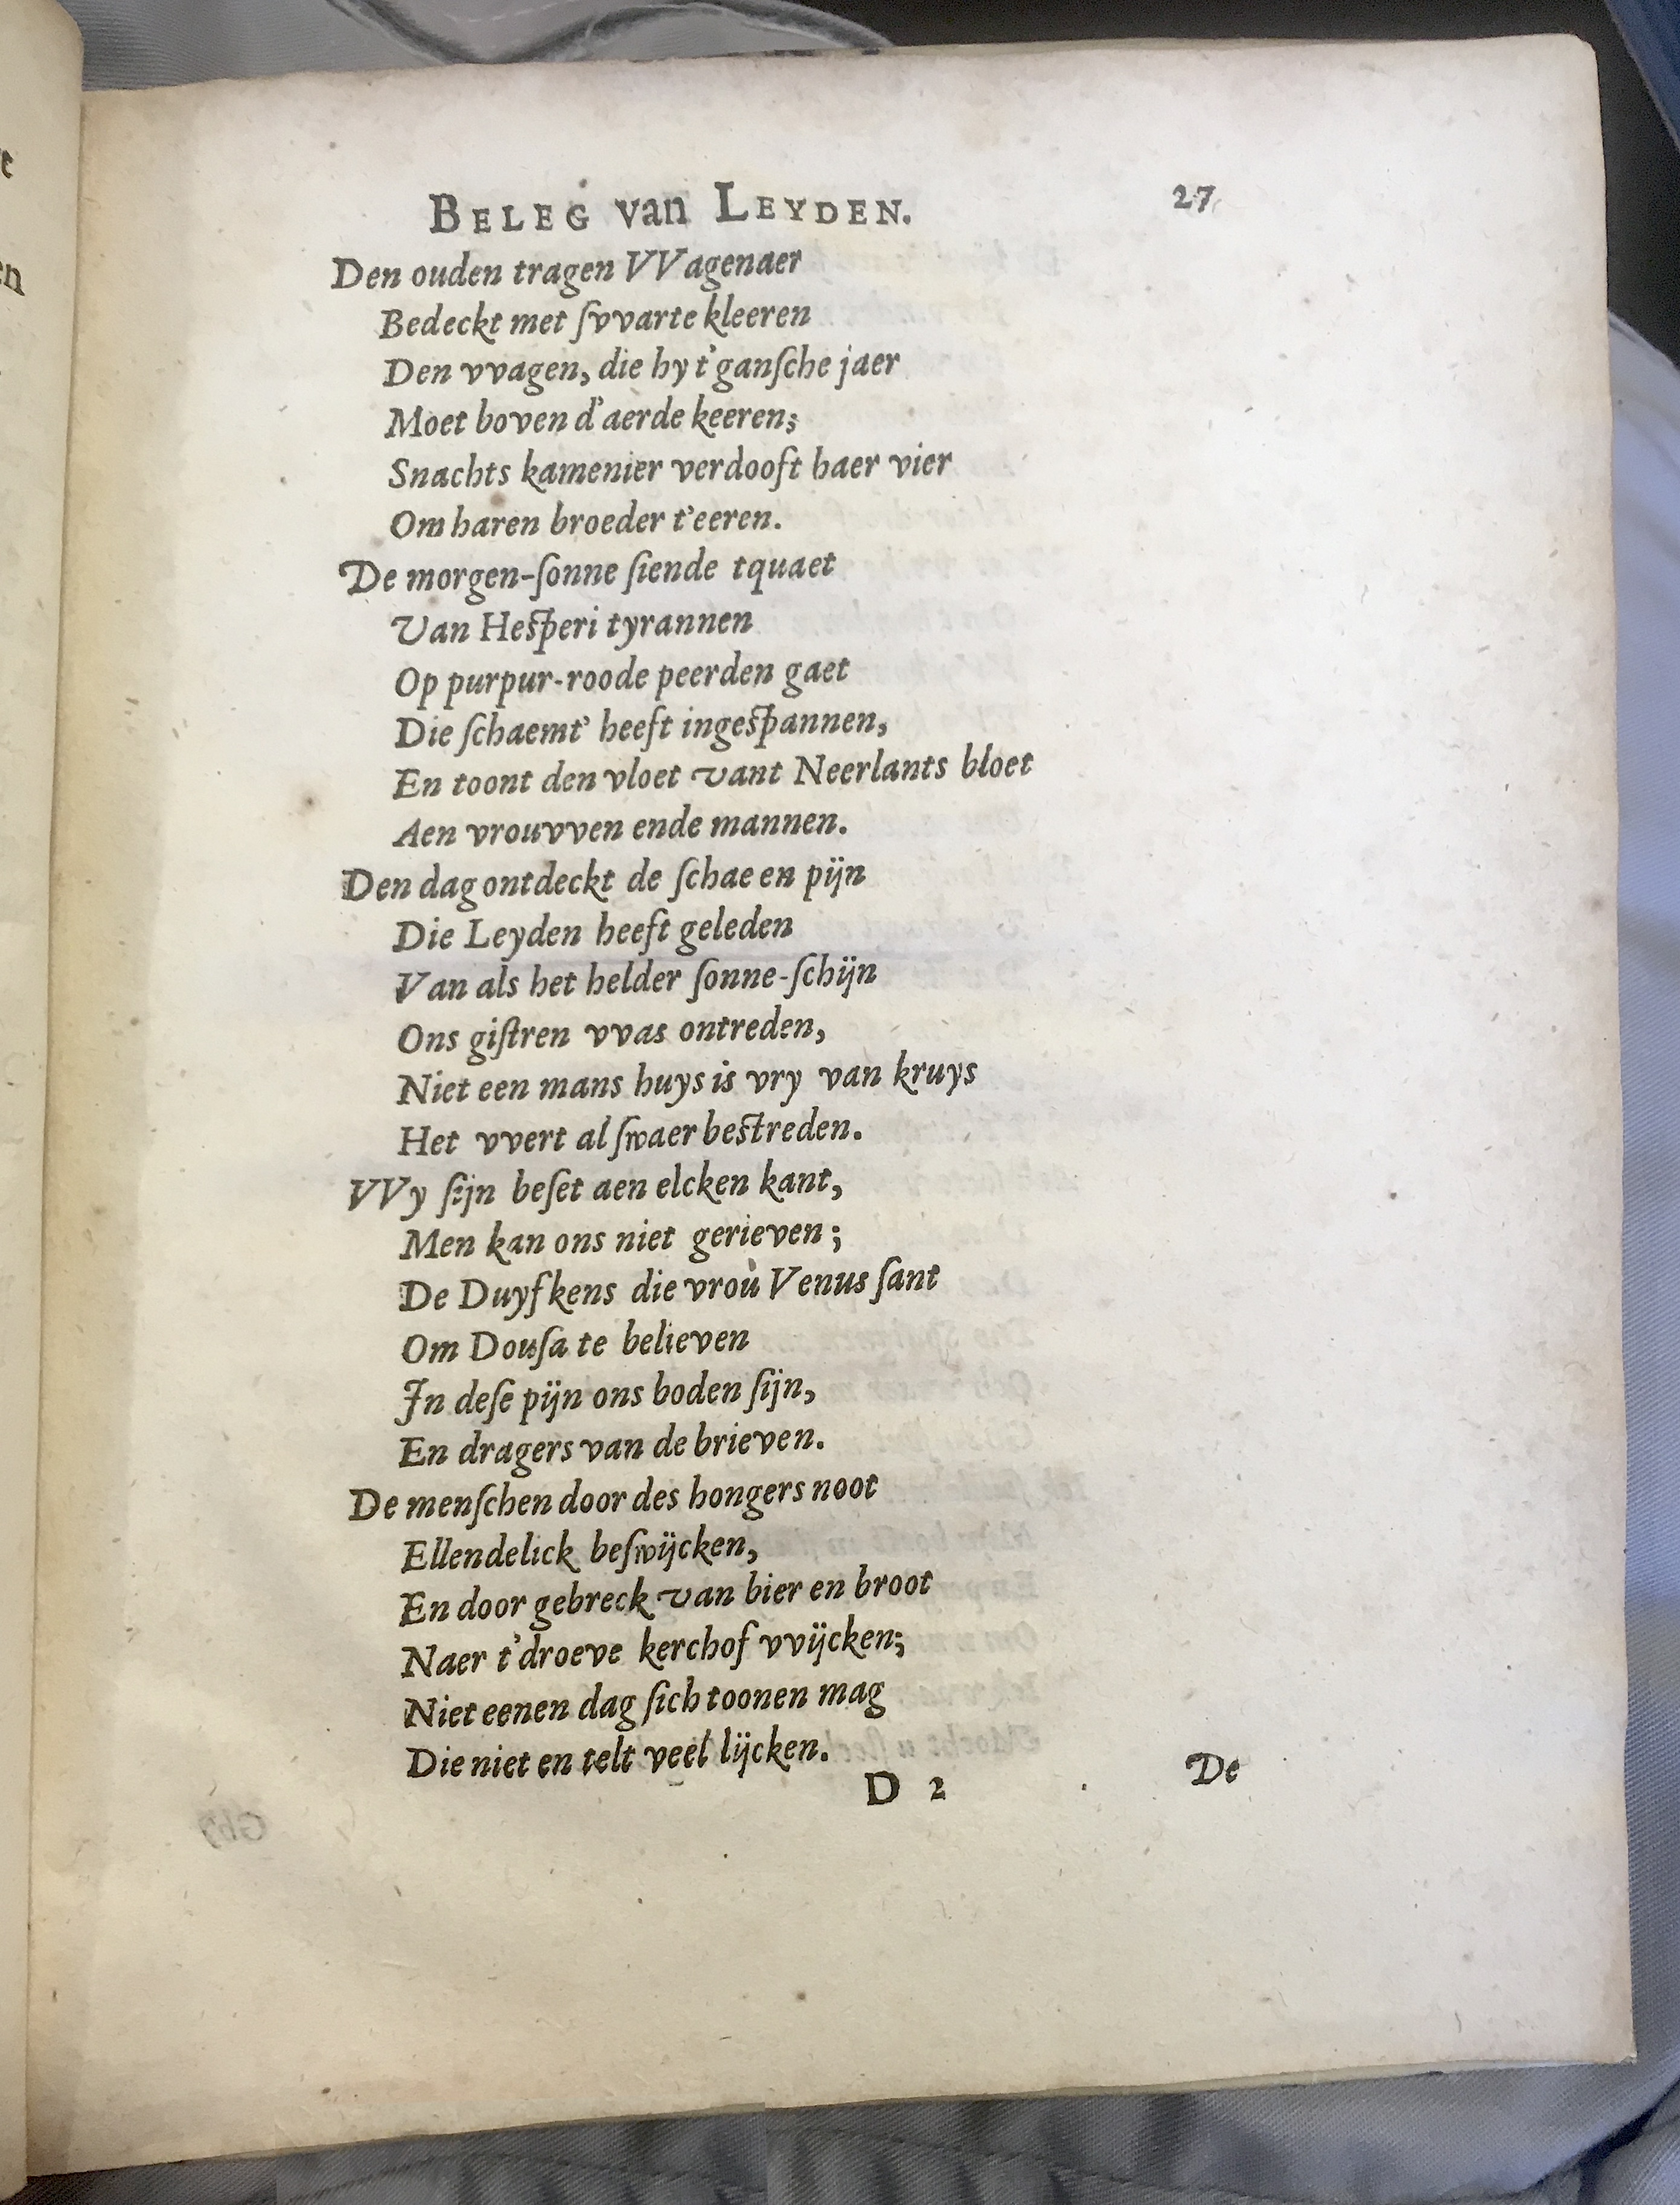 BELEG van LEYDEN. 27
Den ouden tragen VVagenaer
Bedeckt met ſvvarte kleeren
Den vvagen, die hy t'ganſche jaer
Moet boven d'aerde keeren;
Snachts kamenier verdooft haer vier
Om haren broeder t'eeren.
De morgen-ſonne ſiende tquaet
Van Heſperi tyrannen
Op purpur-roode peerden gaet
Die ſchaemt' heeft ingeſpannen,
En toont den vloet vant Neerlants bloet
Aen vrouvven ende mannen.
Den dag ontdeckt de ſchae en pijn
Die Leyden heeft geleden
Van als het helder ſonne-ſchijn
Ons giſtren vvas ontreden,
Niet een mans huys is vry van kruys
Het vvert al ſwaer beſtreden.
VVy ſijn beſet aen elcken kant,
Men kan ons niet gerieven;
De Duyfkens die vroù Venus ſant
Om Douſa te believen
In deſe pijn ons boden ſijn,
En dragers van de brieven.
De menſchen door des hongers noot
Ellendelick beſwijcken,
En door gebreck van bier en broot
Naer t'droeve kerchof vvijcken;
Niet eenen dag ſich toonen mag
Die niet en telt veel lijcken.
D 2 De